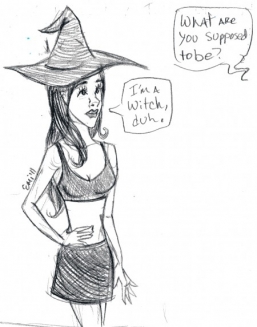 WHAT ARE
YOU SUPPOSED
to be?
I'm A
Witch,
duh.